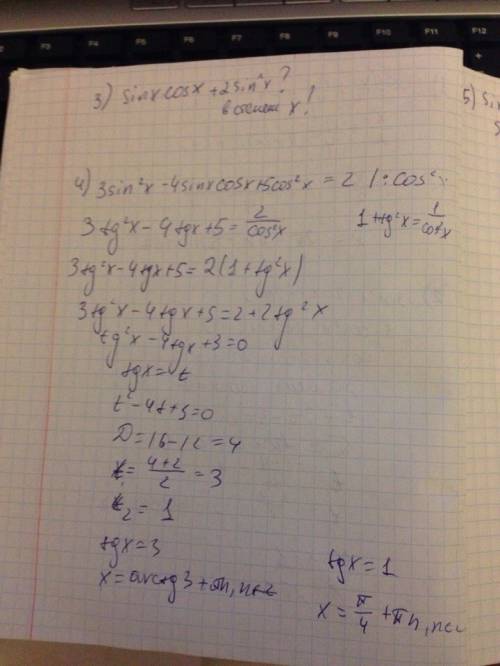 3) sinx cosx + 2sin²x?
в степени x!
5) si
4) 3sin²x - 4sinx cosx + 5cos²x = 2 |: cos²x
3tg²x - 4tgx + 5 = 2/cos²x
1 + tg²x = 1/cos²x
3tg²x - 4tgx + 5 = 2(1 + tg²x)
3tg²x - 4tgx + 5 = 2 + 2tg²x
tg²x - 4tgx + 3 = 0
tgx = t
t² - 4t + 3 = 0
D = 16 - 12 = 4
t₁ = (4+2)/2 = 3
t₂ = 1
tgx = 3
tgx = 1
x = arctg3 + πn, n∈z
x = π/4 + πn, n∈